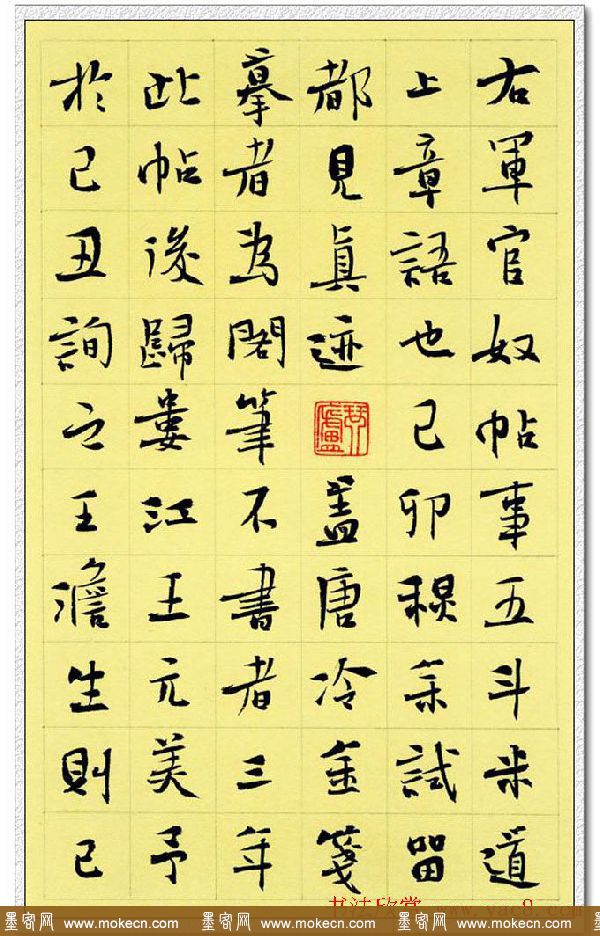 右軍官奴帖事五斗米道
上章語也己卯余試留
都見眞迹盖唐冷金箋
摹者為閣筆不書者三年
此帖後歸婁江王元美予
於己丑詢之王澹生則已
书法欣赏 www.yac8.
墨客网 www.mokecn.com 墨客网 www.mokecn.com 墨客网 www.mokecn.com